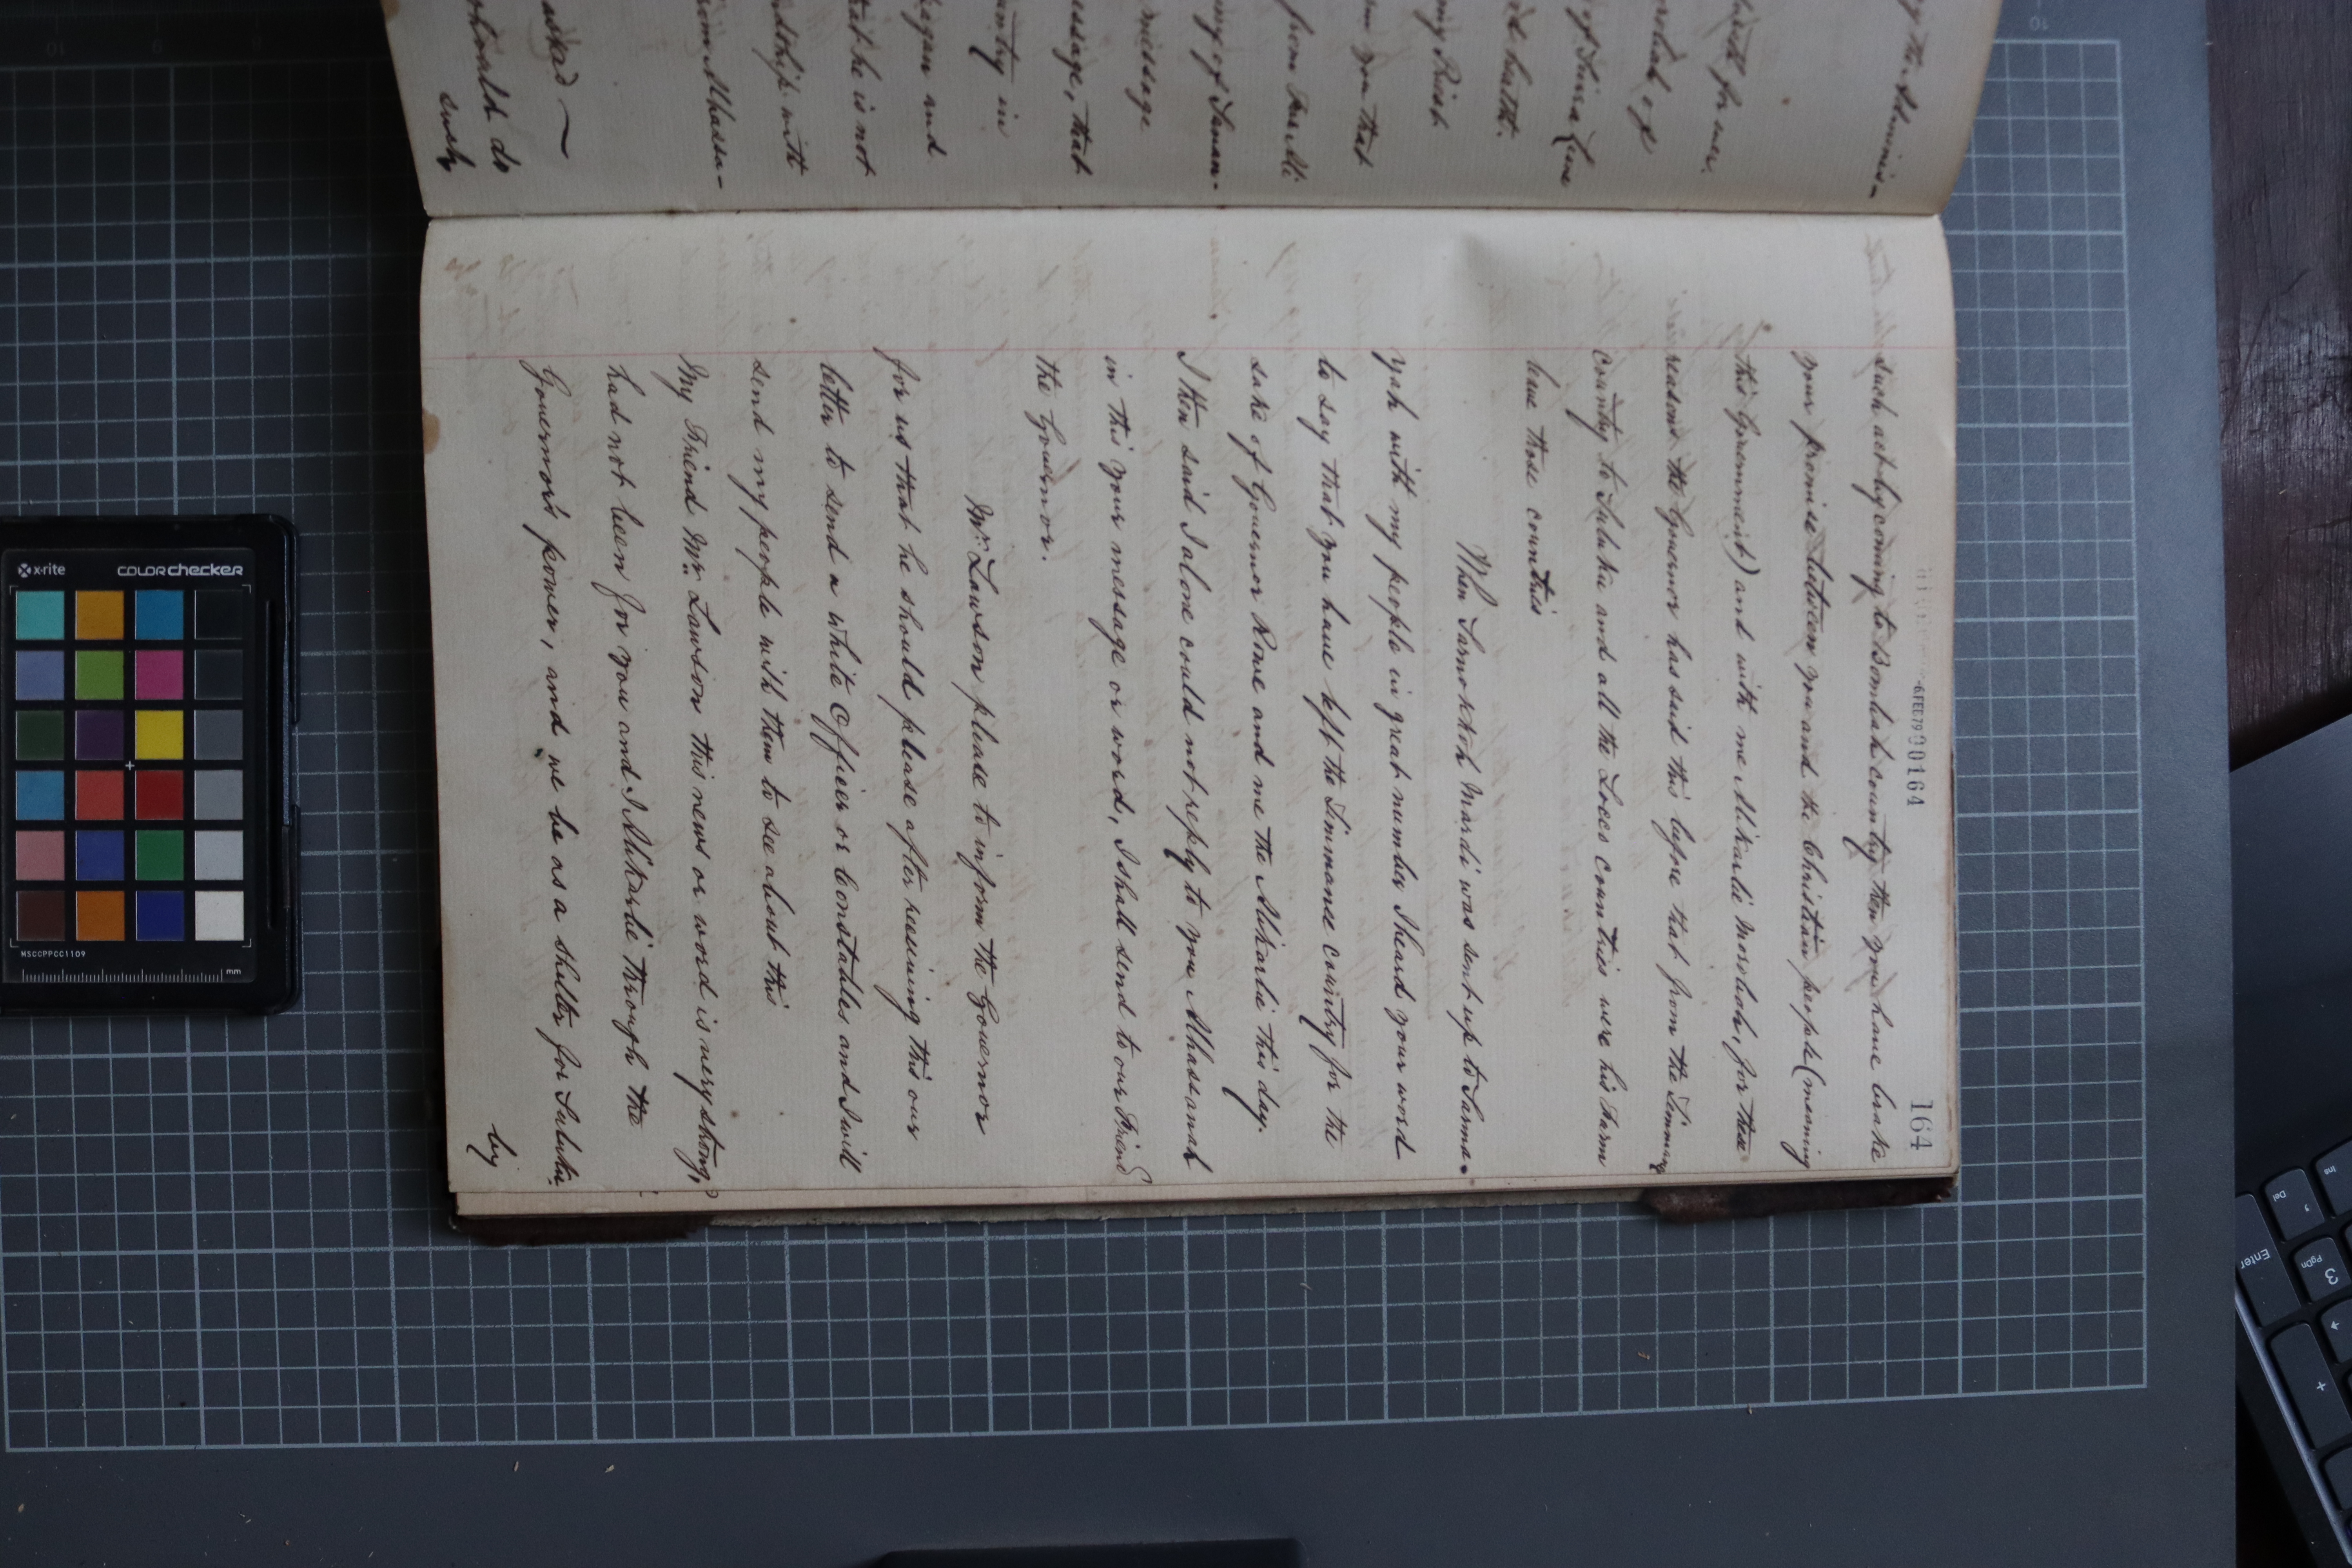 164
-6FEB79 00164
such act by coming to Bombah country then you have broke
your promise between you and the Christian people (meaning
this Government) and with me Alikarlie Morobah, for these
reasons the Governor has said this before that from the Timmany
country to Tuluku and all the Locos countries were his Farm
leave those countries
When Sarnokkoh Mardi was sent up to Tarma-
yah with my people in great number I heard your word
to say that you have left the Timmanee country for the
sake of Governor Rowe and me the Alikarlie this day.
I then said I alone could not reply to you Alhassanah
in this your message or word, I shall send to our Friend
the Governor.
Mr. Lawson please to inform the Governor
for us that he should please after receiving this our
letter to send a white Officer or Constables and I will
send my people with them to see about this
My Friend Mr. Lawson this news or word is very strong,
had not been for you and I Alikarlie through the
Governor's power, and we be as a shelter for Tuluku
by
try the Adminis-
of
health.
you that
from
message
essage, that
untry in
began and
that he is not
ndship with
from Alhassa-
askad ~
should do
such
x-rite
COLORchecker
MSCCPPCC1109
mm
10
9
10
Ins
Del
PgDn
3
Enter
+